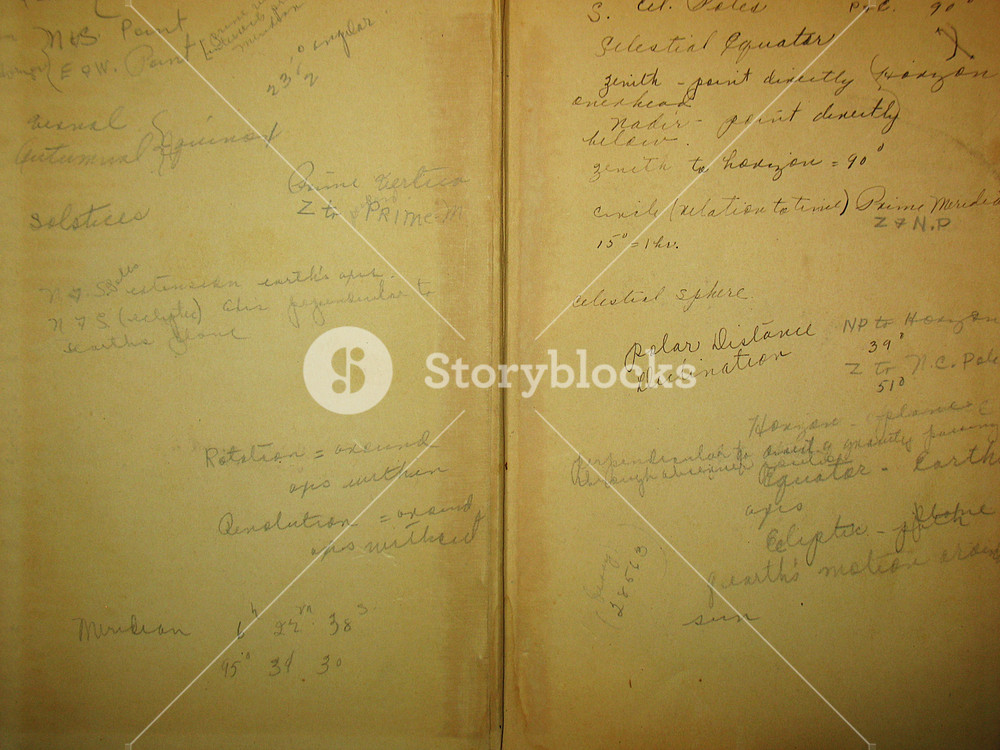 N & S. Point
E & W. Point
23 1/2° angular
Vernal
Autumnal Equinox
Prime Vertica
Z to PRIME M
Solstices
N & S. Poles extension earth's axis.
N & S (ecliptic) axis perpendicular to
earth's plane
Rotation = around
axis within
Revolution = around
axis without
Meridian 6h 22m 38s
95° 39 30
S. Cel. Poles 90°
Celestial Equator
Zenith - point directly (Horizon
overhead
Nadir - point directly
below.
Zenith to horizon = 90°
Circle (relation to time) Prime Meridia
Z & N.P
15° = 1 hr.
Celestial Sphere
Polar Distance NP to Horizon
39°
Declination Z to N.C. Pole
51°
Horizon - plane
perpendicular to direct. of gravity passing
through observer
Equator - Earth
axis
Ecliptic - plane
of earth's motion around
sun
28563
Storyblocks